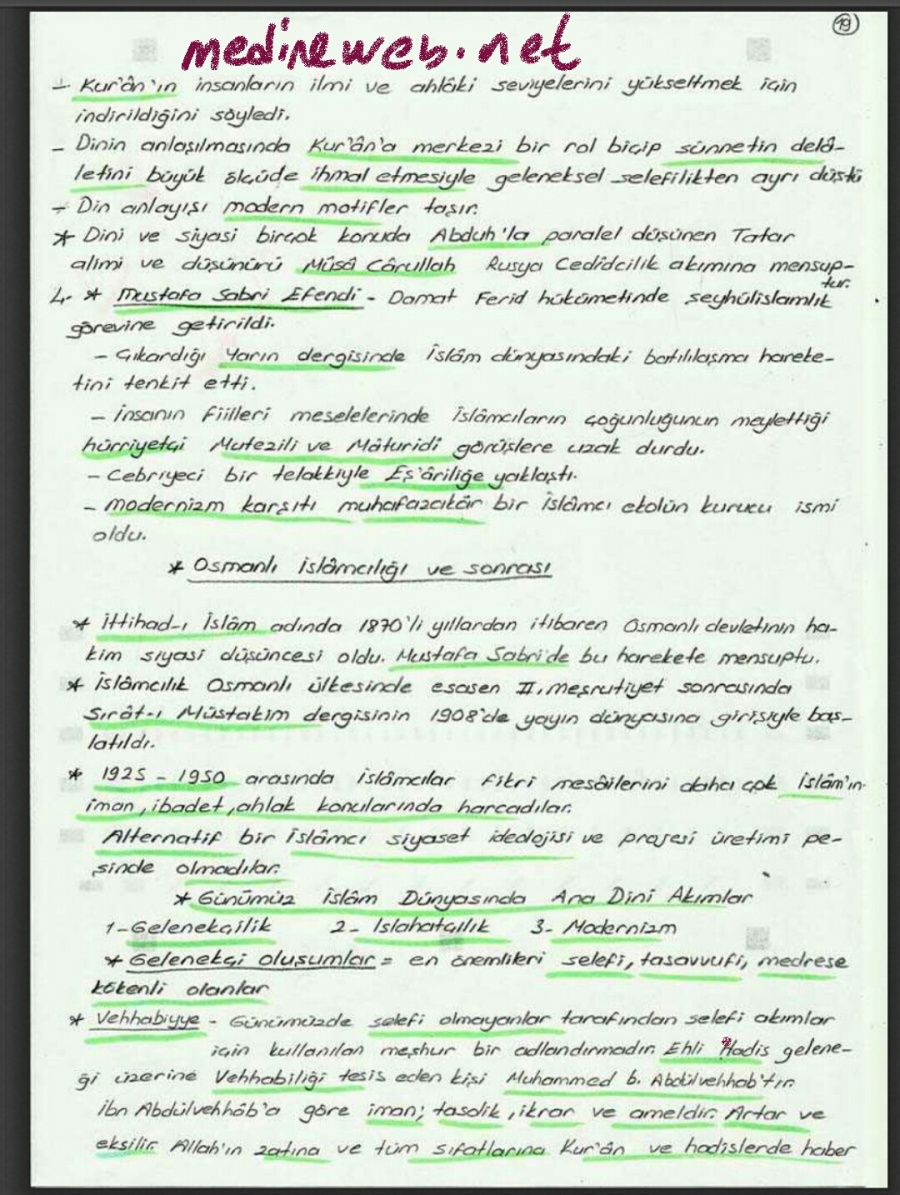 19
medineweb.net
- Kur'ân'ın insanların ilmi ve ahlâki seviyelerini yükseltmek için
indirildiğini söyledi.
- Dinin anlaşılmasında Kur'ân'a merkezi bir rol biçip sünnetin delâ-
letini büyük ölçüde ihmal etmesiyle geleneksel selefilikten ayrı düştü
- Din anlayışı modern motifler taşır.
* Dini ve siyasi birçok konuda Abduh'la paralel düşünen Tatar
alimi ve düşünürü Mûsâ Cârullah Rusya Cedidcilik akımına mensup-
tur.
4. * Mustafa Sabri Efendi - Damat Ferid hükümetinde şeyhülislamlık
görevine getirildi.
- Çıkardığı Yarın dergisinde İslâm dünyasındaki batılılaşma hareke-
tini tenkit etti.
- İnsanın fiilleri meselelerinde İslâmcıların çoğunluğunun meylettiği
hürriyetçi Mutezili ve Mâturidi görüşlere uzak durdu.
- Cebriyeci bir telakkiyle Eş'âriliğe yaklaştı.
- Modernizm karşıtı muhafazakâr bir İslâmcı ekolün kurucu ismi
oldu.
* Osmanlı İslâmcılığı ve sonrası
* İttihad-ı İslâm adında 1870'li yıllardan itibaren Osmanlı devletinin ha-
kim siyasi düşüncesi oldu. Mustafa Sabri'de bu harekete mensuptu.
* İslâmcılık Osmanlı ülkesinde esasen II. meşrutiyet sonrasında
Sırât-ı Müstakim dergisinin 1908'de yayın dünyasına girişiyle baş-
latıldı.
* 1925 - 1950 arasında İslâmcılar fikri mesâilerini daha çok İslâm'ın
iman, ibadet, ahlak konularında harcadılar.
Alternatif bir İslâmcı siyaset ideolojisi ve projesi üretimi pe-
şinde olmadılar.
* Günümüz İslâm Dünyasında Ana Dini Akımlar
1- Gelenekçilik 2- Islahatçılık 3- Modernizm
* Gelenekçi oluşumlar = en önemlileri selefi, tasavvufi, medrese
kökenli olanlar
* Vehhabiyye - Günümüzde selefi olmayanlar tarafından selefi akımlar
için kullanılan meşhur bir adlandırmadır. Ehli Hadis gelene-
ği üzerine Vehhabiliği tesis eden kişi Muhammed b. Abdülvehhab'tır.
İbn Abdülvehhâb'a göre iman; tasdik, ikrar ve ameldir. Artar ve
eksilir. Allah'ın zatına ve tüm sıfatlarına Kur'ân ve hadislerde haber